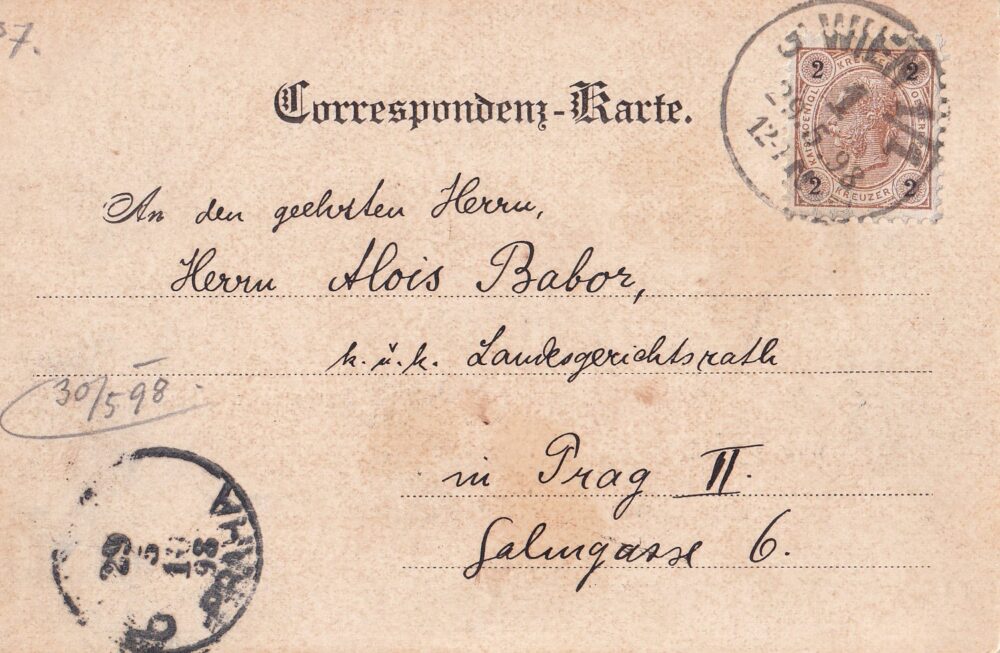 37.
Correspondenz-Karte.
WIEN 1/1
29 5 98
12-1
2 KREUZER 2
KAIS. KOENIGL. OESTERR.
2 KREUZER 2
An den geehrten Herrn,
Herrn Alois Babor,
k. u. k. Landesgerichtsrath
30/5 98
in Prag II.
Salmgasse 6.
PRAHA
29
5
98